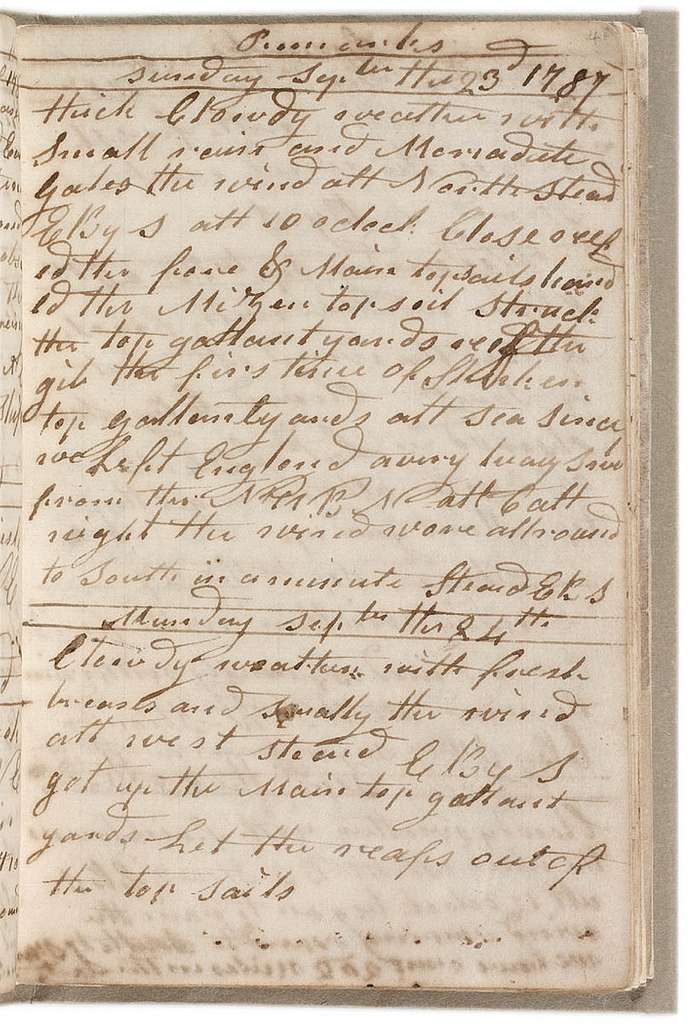 Remarks
Sunday Sepbr the 23d 1787
thick Clowdy weather with
Small rain and Morradete
Gales the wind att North Stead
E By S att 10 oclock Close reef
ed the fore & Main topsails hand
ed the Mizen topsail Struck
the top gallant yards reef the
gib the first time of Strken
top gallant yards att Sea Since
we Left England a very heavy Sea
from the N att 6 att
night the wind wore all round
to South in a minute Steard E B S
Munday Sepbr the 24th
Clowdy weather with fresh
breases and Squally the wind
att west Steard E By S
got up the Main top gallant
yards Let the reafs out of
the top Sails